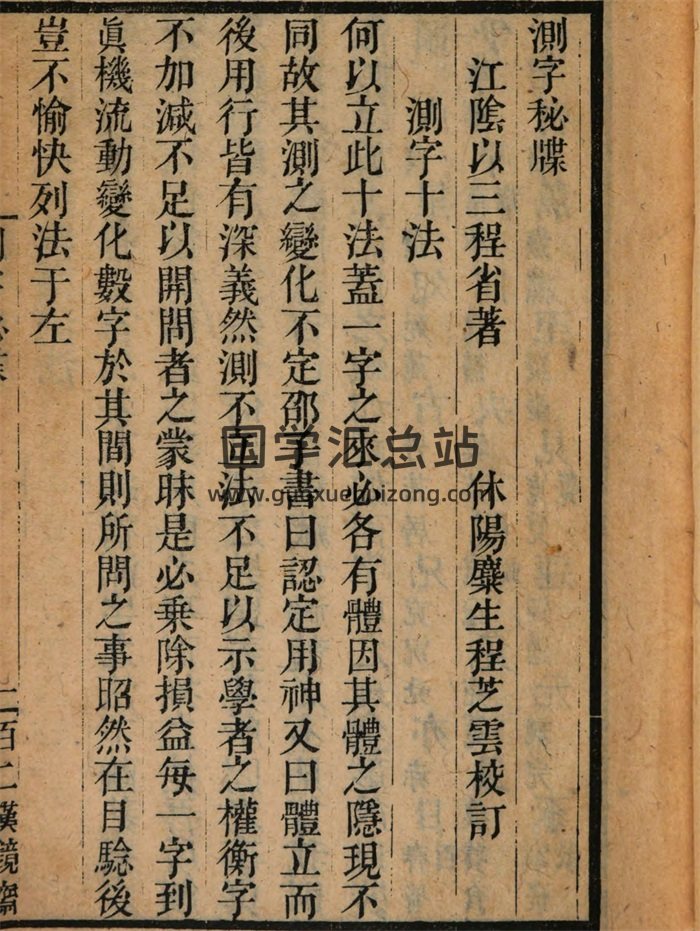 測字秘牒
江陰以三程省著　休陽麋生程芝雲校訂
測字十法
何以立此十法蓋一字之來必各有體因其體之隱現不
同故其測之變化不定邵子書曰認定用神又曰體立而
後用行皆有深義然測不立法不足以示學者之權衡字
不加減不足以開問者之蒙昧是必乗除損益每一字到
眞機流動變化數字於其間則所問之事昭然在目騐後
豈不愉快列法于左
二百二漢鏡齋
国学汇总站
www.guoxuehuizong.com